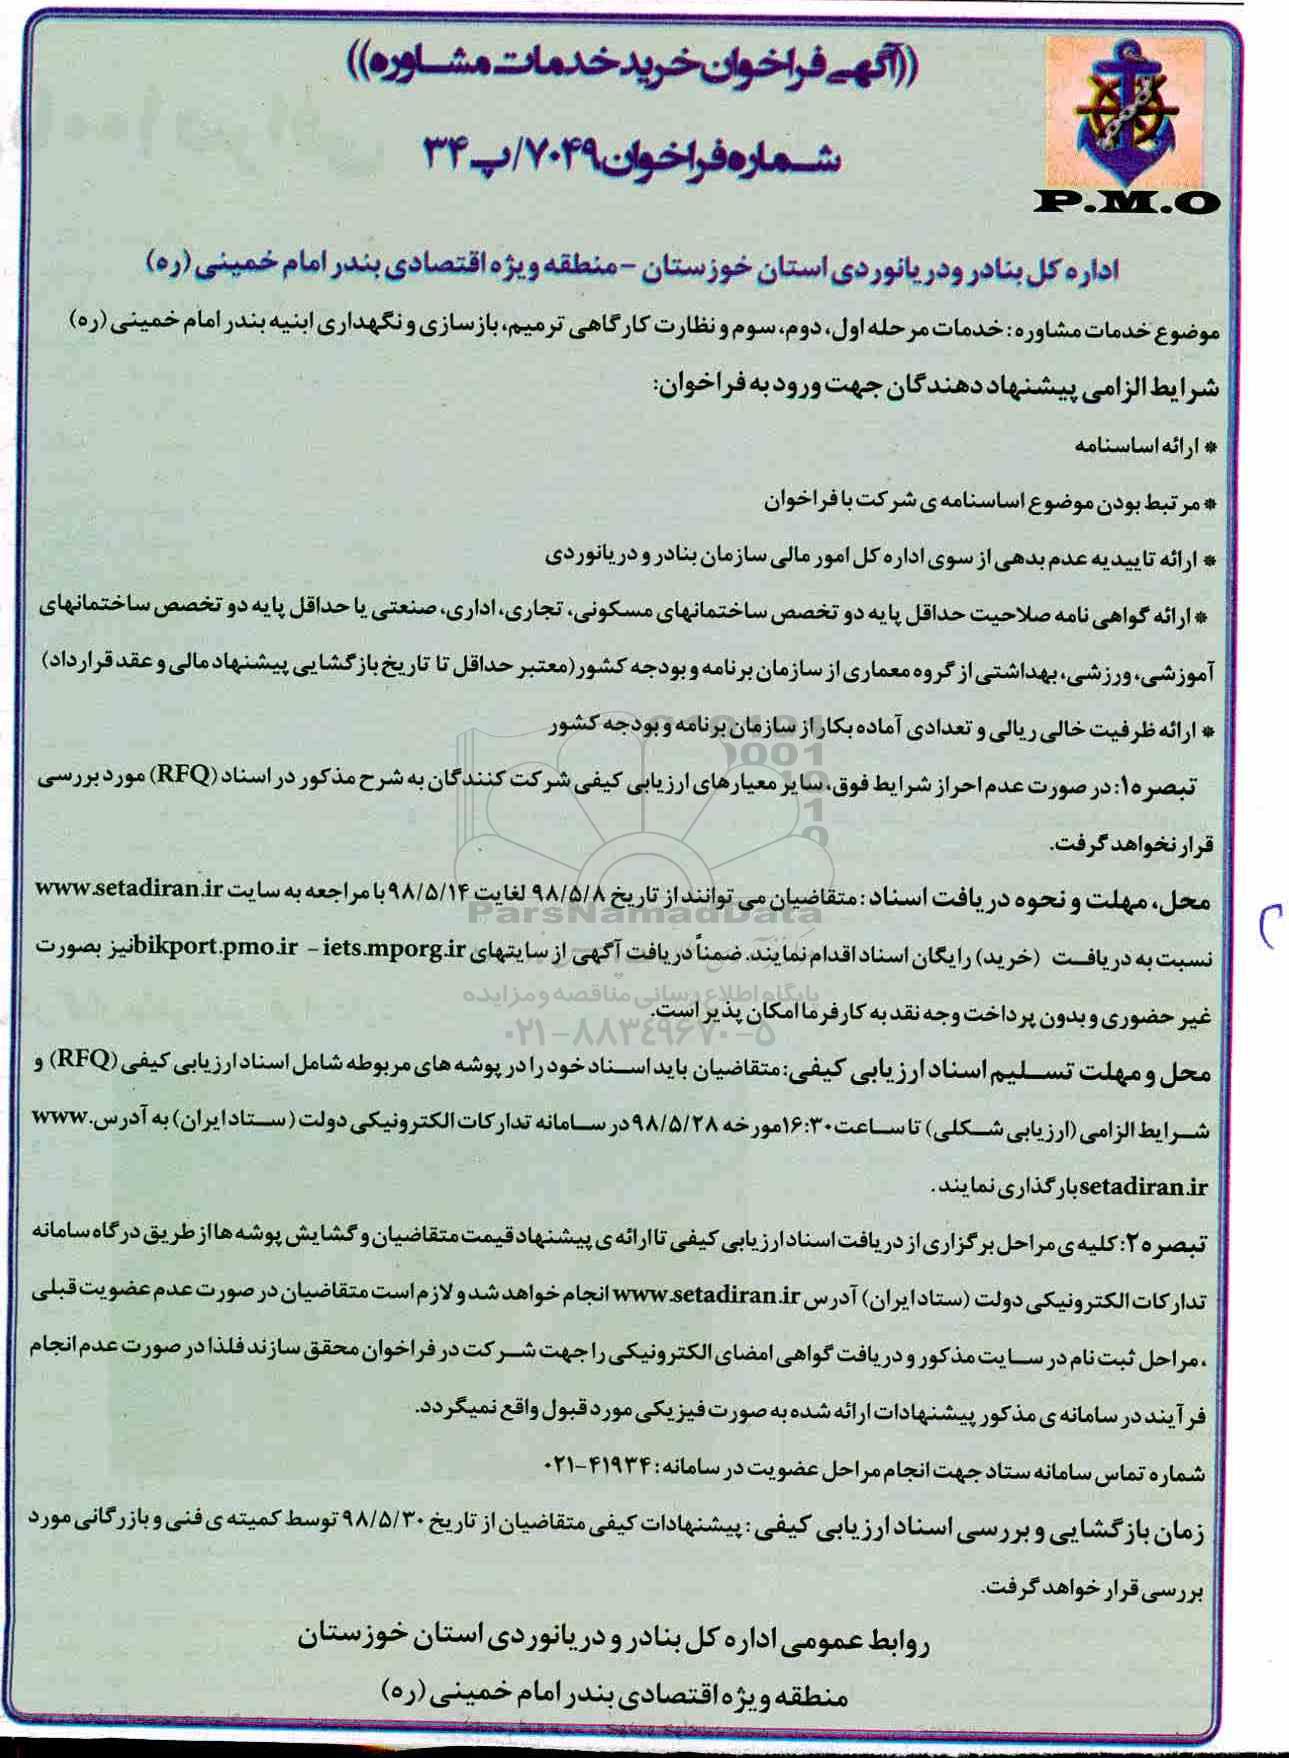 ((آگهی فراخوان خرید خدمات مشاوره))
شماره فراخوان ۷۰۴۹/پ ۳۴
P.M.O
اداره کل بنادر ودریانوردی استان خوزستان -منطقه ویژه اقتصادی بندر امام خمینی (ره)
موضوع خدمات مشاوره: خدمات مرحله اول، دوم، سوم و نظارت کارگاهی ترمیم، بازسازی و نگهداری ابنیه بندر امام خمینی (ره)
شرایط الزامی پیشنهاد دهندگان جهت ورود به فراخوان:
* ارائه اساسنامه
* مرتبط بودن موضوع اساسنامه ی شرکت با فراخوان
* ارائه تاییدیه عدم بدهی از سوی اداره کل امور مالی سازمان بنادر و دریانوردی
* ارائه گواهی نامه صلاحیت حداقل پایه دو تخصص ساختمانهای مسکونی، تجاری، اداری، صنعتی یا حداقل پایه دو تخصص ساختمانهای
آموزشی، ورزشی، بهداشتی از گروه معماری از سازمان برنامه و بودجه کشور(معتبر حداقل تا تاریخ بازگشایی پیشنهاد مالی و عقد قرارداد)
* ارائه ظرفیت خالی ریالی و تعدادی آماده بکار از سازمان برنامه و بودجه کشور
تبصره۱: در صورت عدم احراز شرایط فوق، سایر معیارهای ارزیابی کیفی شرکت کنندگان به شرح مذکور در اسناد (RFQ) مورد بررسی
قرار نخواهد گرفت.
محل، مهلت و نحوه دریافت اسناد: متقاضیان می توانند از تاریخ ۹۸/۵/۸ لغایت ۹۸/۵/۱۴ با مراجعه به سایت www.setadiran.ir
ParsNamadData
نسبت به دریافت (خرید) رایگان اسناد اقدام نمایند. ضمناً دریافت آگهی از سایتهای bikport.pmo.ir - iets.mporg.ir نیز بصورت
پایگاه اطلاع رسانی مناقصه و مزایده
غیر حضوری و بدون پرداخت وجه نقد به کارفرما امکان پذیر است.
۰۲۱-۸۸۳۴۹۶۷۰-۵
محل و مهلت تسلیم اسناد ارزیابی کیفی: متقاضیان باید اسناد خود را در پوشه های مربوطه شامل اسناد ارزیابی کیفی (RFQ) و
شرایط الزامی (ارزیابی شکلی) تا ساعت ۱۶:۳۰ مورخه ۹۸/۵/۲۸ در سامانه تدارکات الکترونیکی دولت (ستاد ایران) به آدرس www.
setadiran.ir بارگذاری نمایند.
تبصره ۲: کلیه ی مراحل برگزاری از دریافت اسناد ارزیابی کیفی تا ارائه ی پیشنهاد قیمت متقاضیان و گشایش پوشه ها از طریق درگاه سامانه
تدارکات الکترونیکی دولت (ستاد ایران) آدرس www.setadiran.ir انجام خواهد شد و لازم است متقاضیان در صورت عدم عضویت قبلی
، مراحل ثبت نام در سایت مذکور و دریافت گواهی امضای الکترونیکی را جهت شرکت در فراخوان محقق سازند فلذا در صورت عدم انجام
فرآیند در سامانه ی مذکور پیشنهادات ارائه شده به صورت فیزیکی مورد قبول واقع نمیگردد.
شماره تماس سامانه ستاد جهت انجام مراحل عضویت در سامانه: ۰۲۱-۴۱۹۳۴
زمان بازگشایی و بررسی اسناد ارزیابی کیفی: پیشنهادات کیفی متقاضیان از تاریخ ۹۸/۵/۳۰ توسط کمیته ی فنی و بازرگانی مورد
بررسی قرار خواهد گرفت.
روابط عمومی اداره کل بنادر و دریانوردی استان خوزستان
منطقه ویژه اقتصادی بندر امام خمینی (ره)